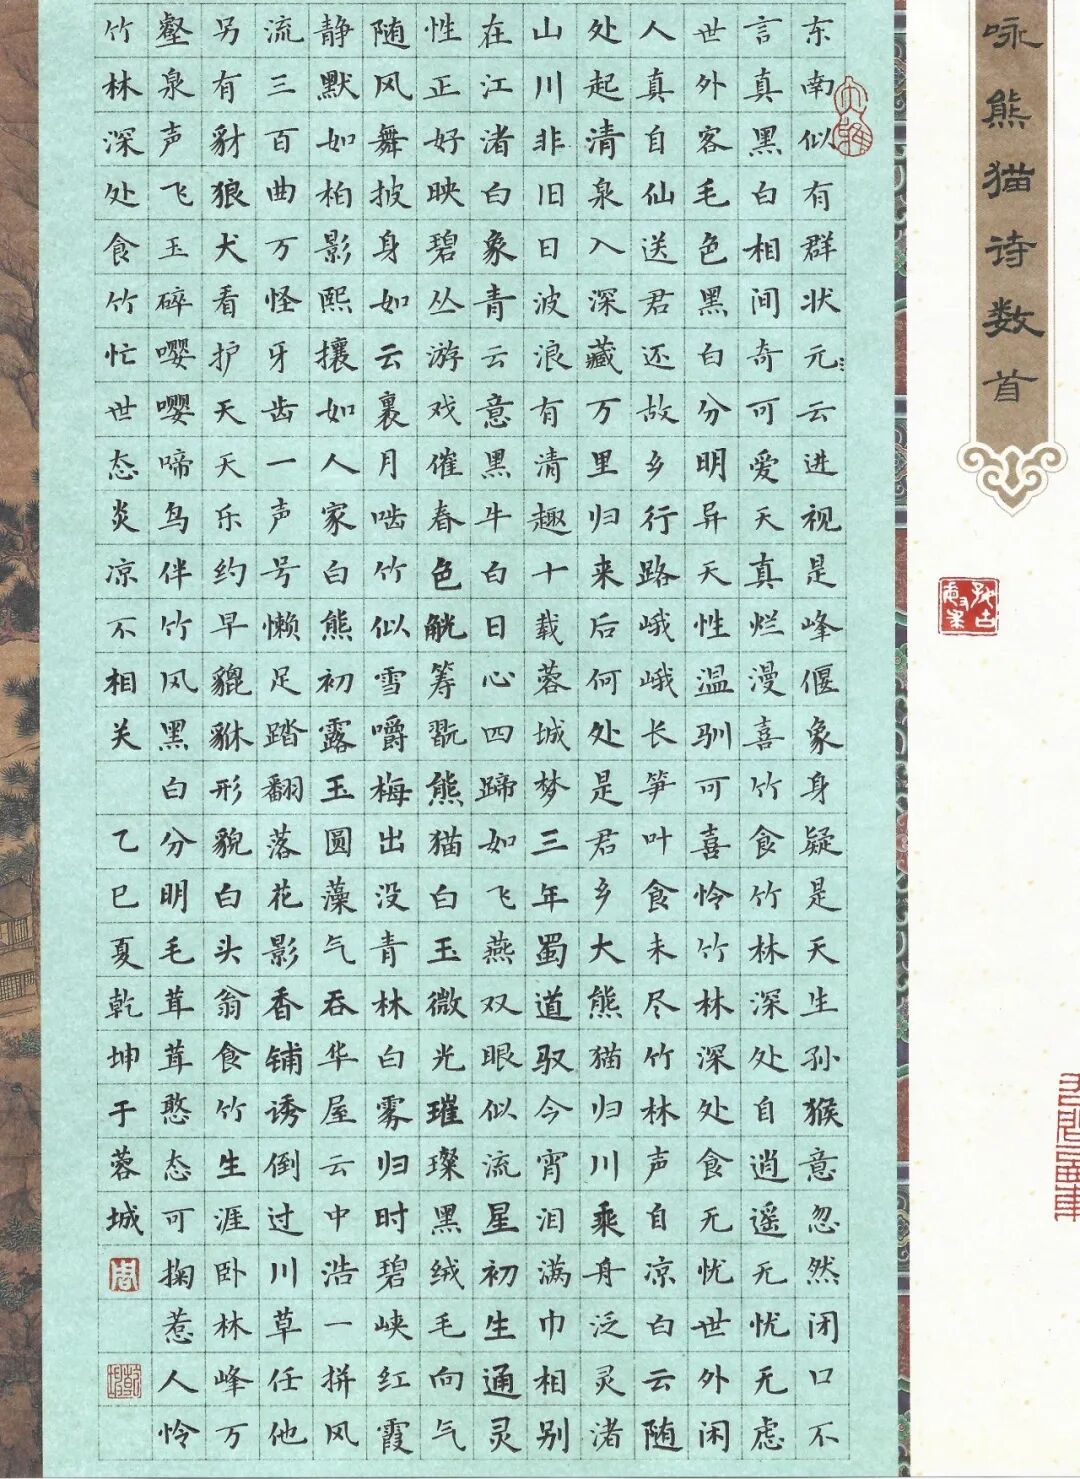 咏熊猫诗数首
东南似有群状元云进视是峰偃象身疑是天生孙猴意忽然闭口不
言真黑白相间奇可爱天真烂漫喜竹食竹林深处自逍遥无忧无虑
世外客毛色黑白分明异天性温驯可喜怜竹林深处食无忧世外闲
人真自仙送君还故乡行路峨峨长笋叶食未尽竹林声自凉白云随
处起清泉入深藏万里归来后何处是君乡大熊猫归川乘舟泛灵渚
山川非旧日波浪有清趣十载蓉城梦三年蜀道驭今宵泪满巾相别
在江渚白象青云意黑牛白日心四蹄如飞燕双眼似流星初生通灵
性正好映碧丛游戏催春色觥筹翫熊猫白玉微光璀璨黑绒毛向气
随风舞披身如云裹月啮竹似雪嚼梅出没青林白雾归时碧峡红霞
静默如柏影熙攘如人家白熊初露玉圆藻气吞华屋云中浩一拼风
流三百曲万怪牙齿一声号懒足踏翻落花影香铺诱倒过川草任他
另有豺狼犬看护天天乐约早貔貅形貌白头翁食竹生涯卧林峰万
壑泉声飞玉碎嘤嘤啼鸟伴竹风黑白分明毛茸茸憨态可掬惹人怜
竹林深处食竹忙世态炎凉不相关 乙巳夏乾坤于蓉城